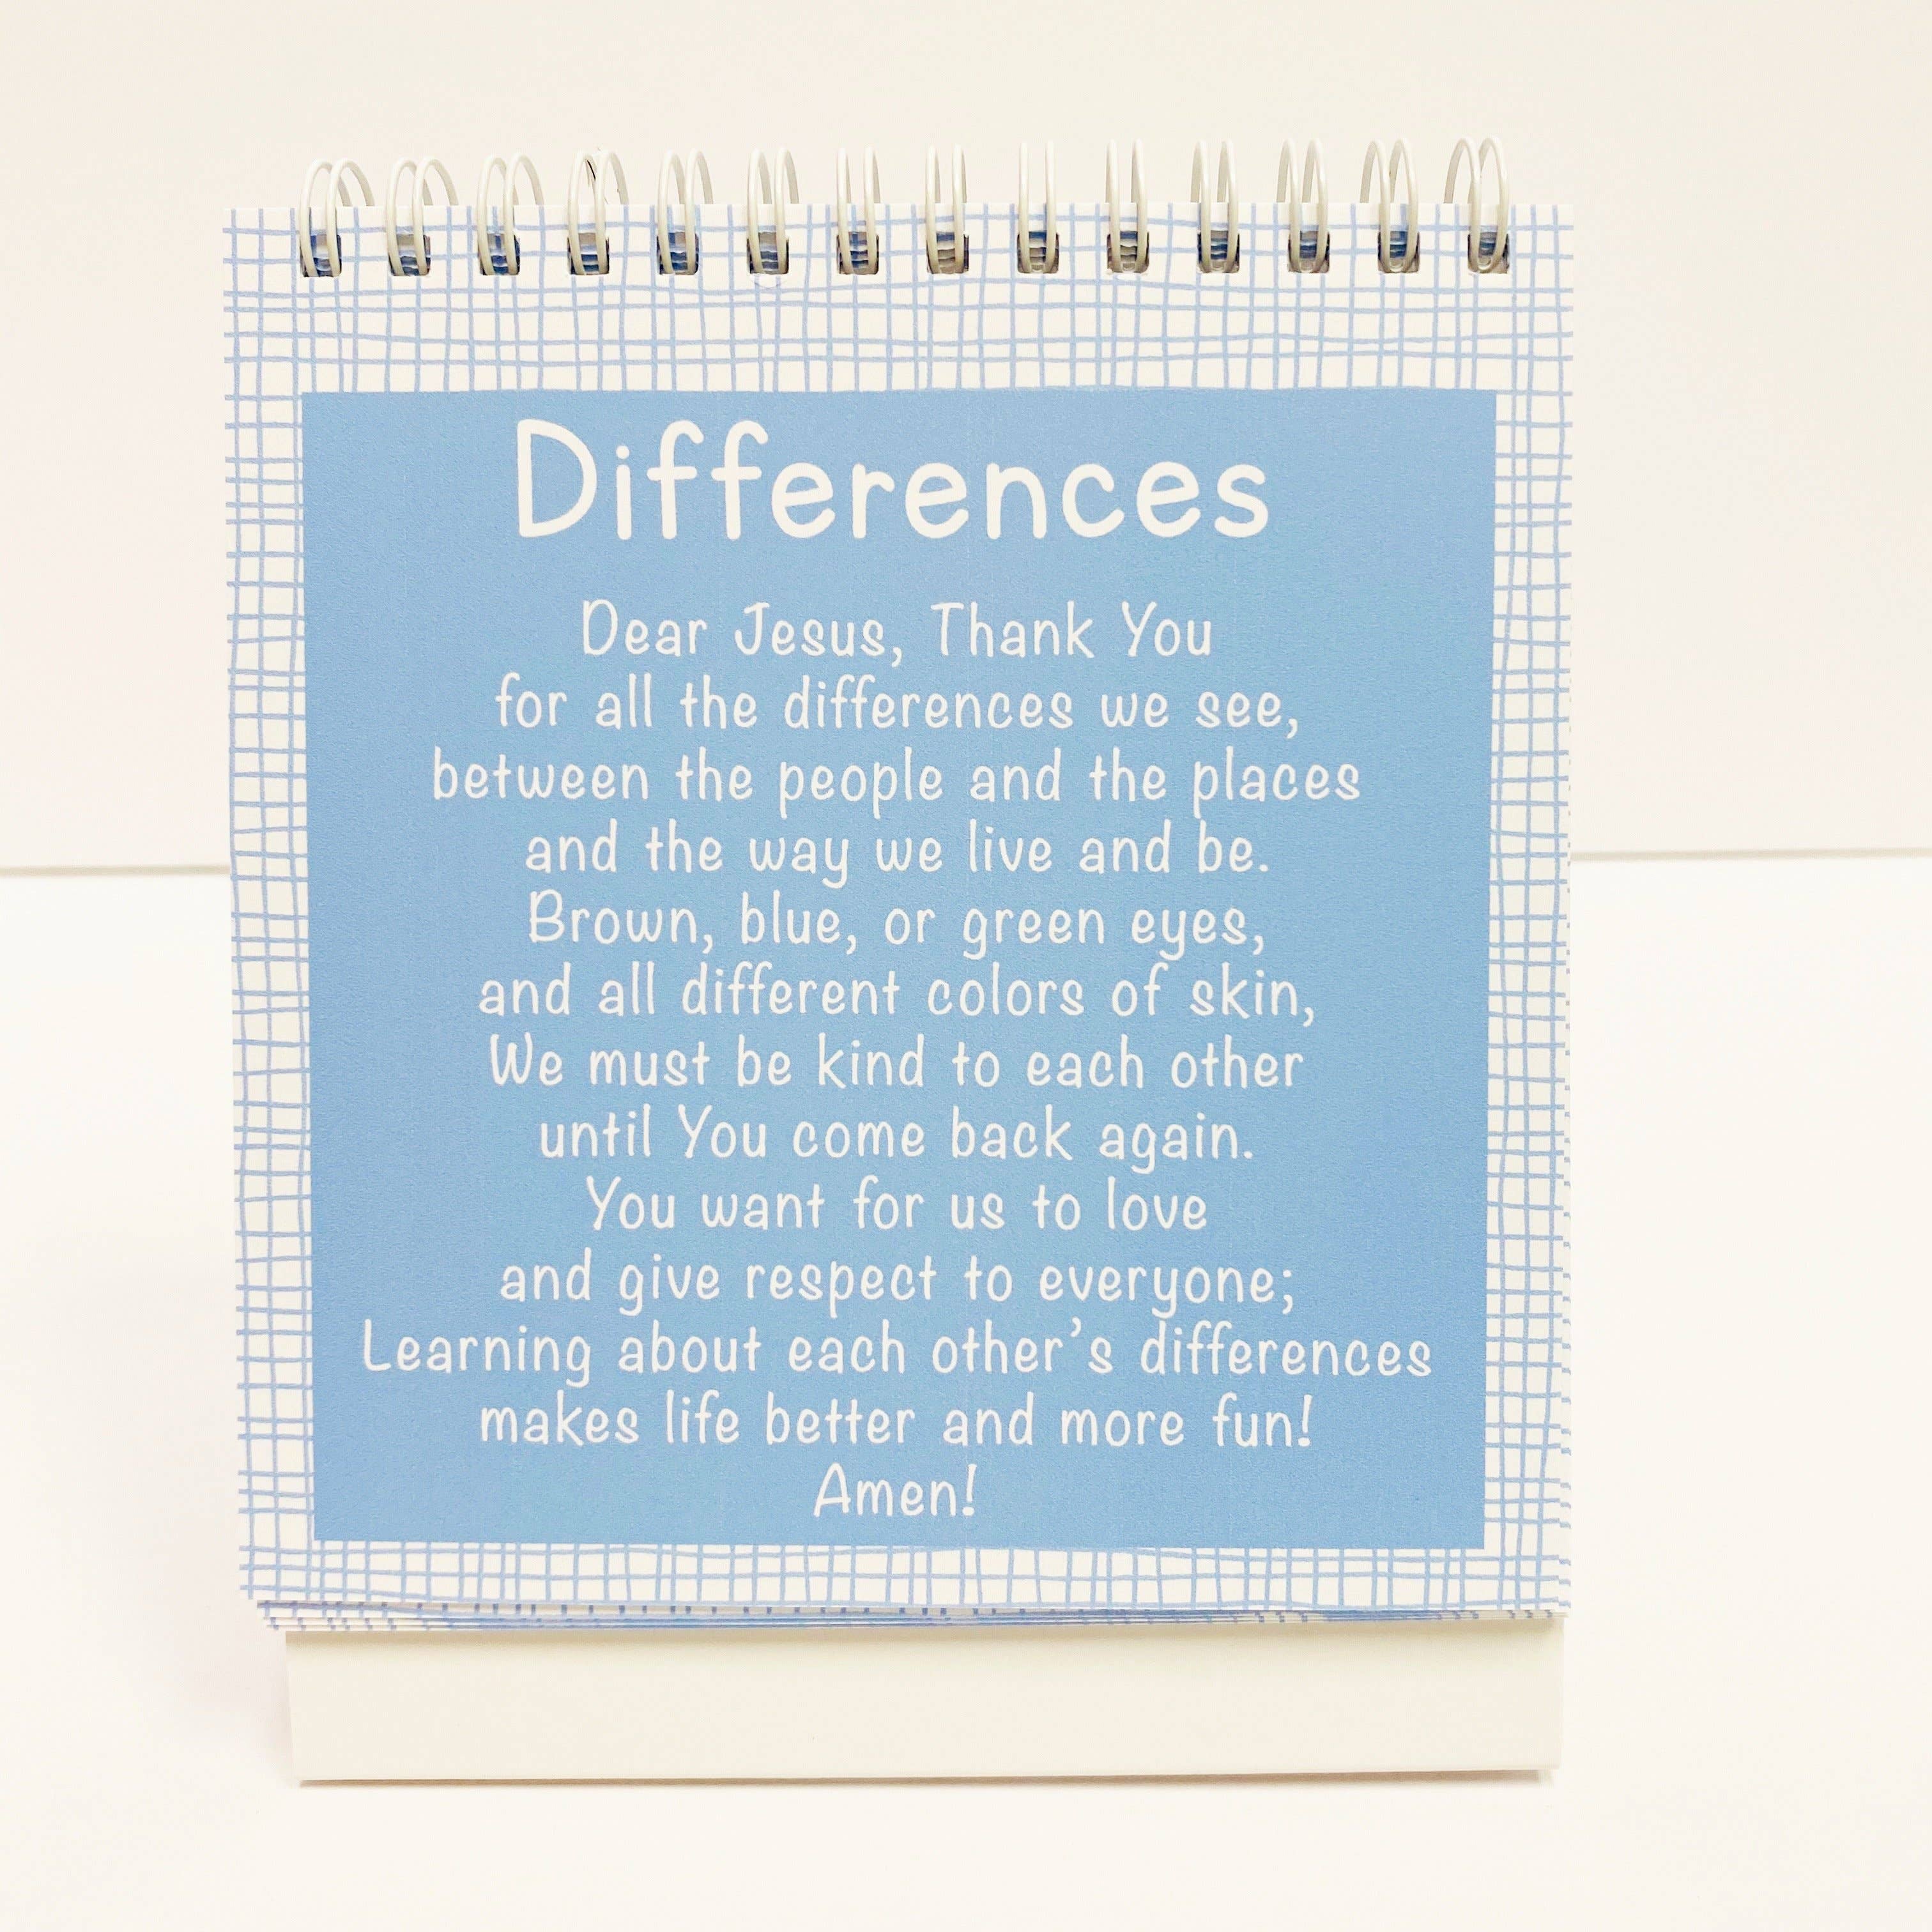 Differences
Dear Jesus, Thank You
for all the differences we see,
between the people and the places
and the way we live and be.
Brown, blue, or green eyes,
and all different colors of skin,
We must be kind to each other
until You come back again.
You want for us to love
and give respect to everyone;
Learning about each other’s differences
makes life better and more fun!
Amen!